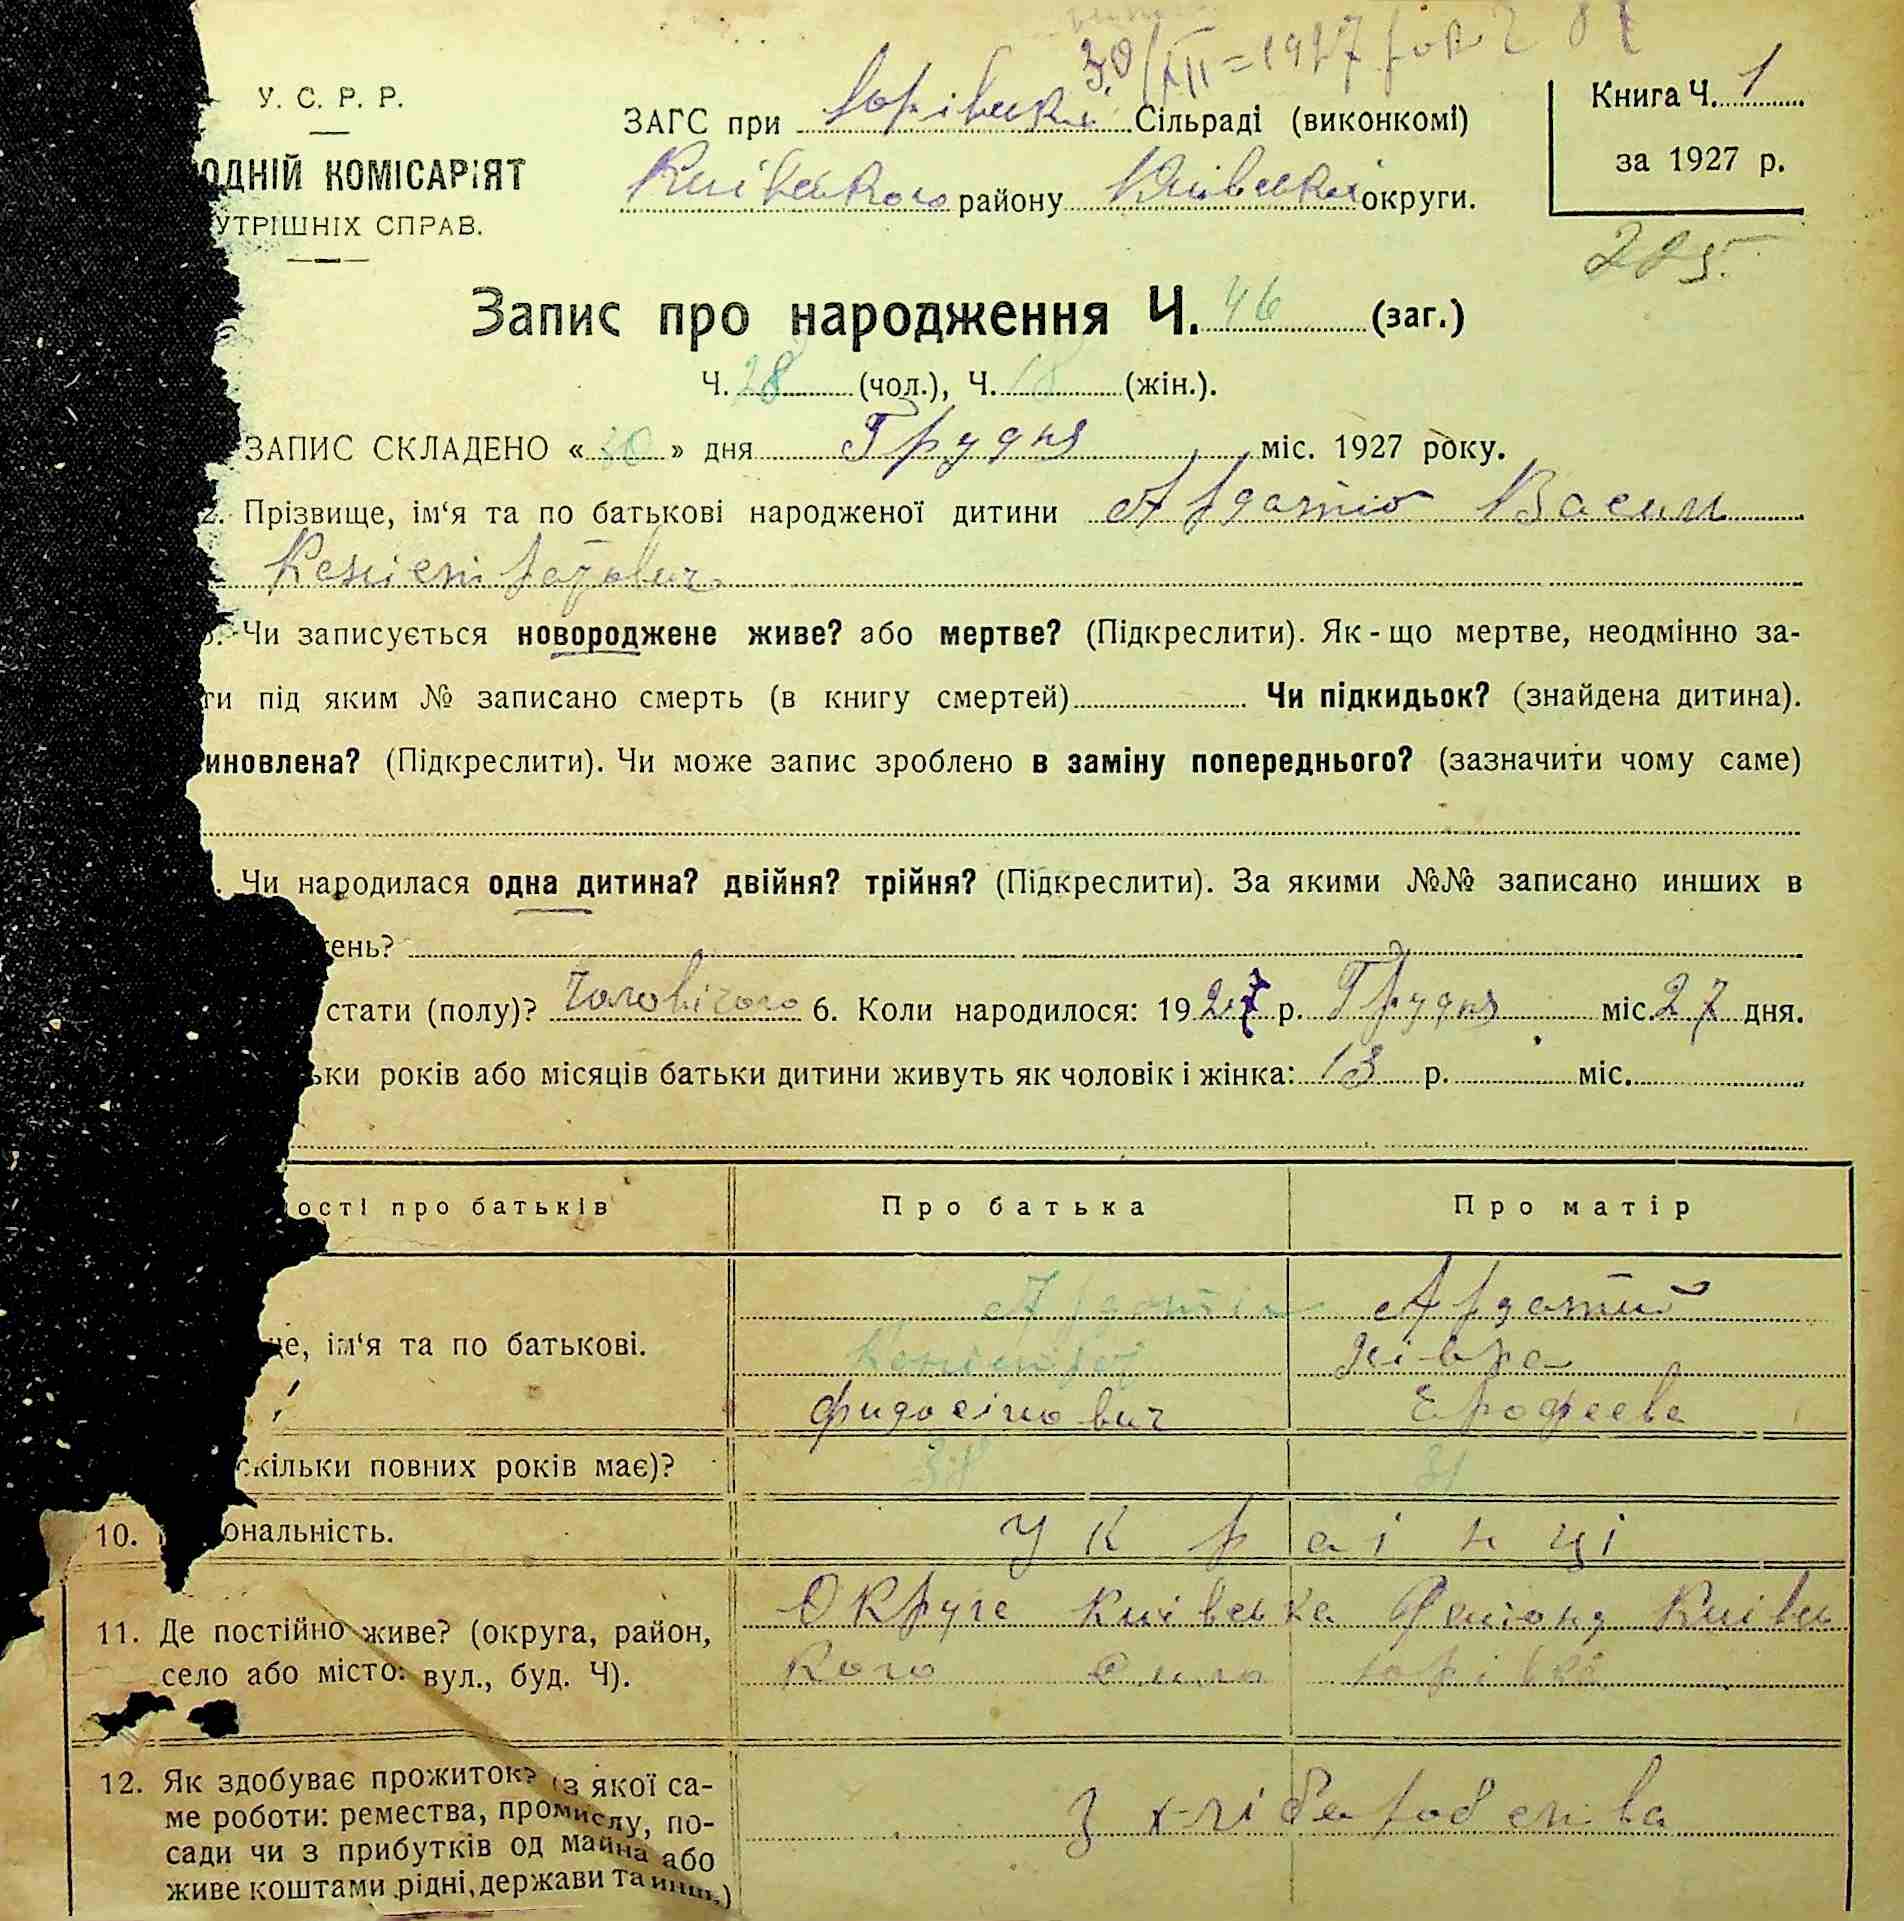 30/XII=1927
У. С. Р. Р.
ЗАГС при Юрівські Сільраді (виконкомі)
Книга Ч. 1
за 1927 р.
ОДНІЙ КОМІСАРІЯТ
УТРІШНІХ СПРАВ.
Київського району Київські округи.
205
Запис про народження Ч. 46 (заг.)
Ч. 28 (чол.), Ч. 18 (жін.).
ЗАПИС СКЛАДЕНО « 30 » дня Грудня міс. 1927 року.
2. Прізвище, ім‘я та по батькові народженої дитини Ардатів Васил
Чи записується новороджене живе? або мертве? (Підкреслити). Як-що мертве, неодмінно за-
ти під яким № записано смерть (в книгу смертей) Чи підкидьок? (знайдена дитина).
иновлена? (Підкреслити). Чи може запис зроблено в заміну попереднього? (зазначити чому саме)
Чи народилася одна дитина? двійня? трійня? (Підкреслити). За якими №№ записано инших в
ень?
стати (полу)? Чоловічого 6. Коли народилося: 1927 р. Грудня міс. 27 дня.
ьки років або місяців батьки дитини живуть як чоловік і жінка: 13 р. міс.
ості про батьків Про батька Про матір
це, ім‘я та по батькові.
Ардатів Ардатий
Фидосійович Єрофеева
скільки повних років має)? 38 31
10. ональність. Українці
11. Де постійно живе? (округа, район,
село або місто: вул., буд. Ч).
Округа Київська Району Київсь
кого Село Юрівка
12. Як здобуває прожиток? (з якої са-
ме роботи: ремества, промислу, по-
сади чи з прибутків од майна або
живе коштами рідні, держави та инш.)
З хлібаробства